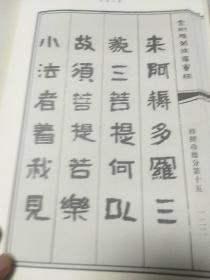 金剛般若波羅蜜經
來阿耨多羅三
藐三菩提何以
故須菩提若樂
小法者著我見
持經功德分第十五